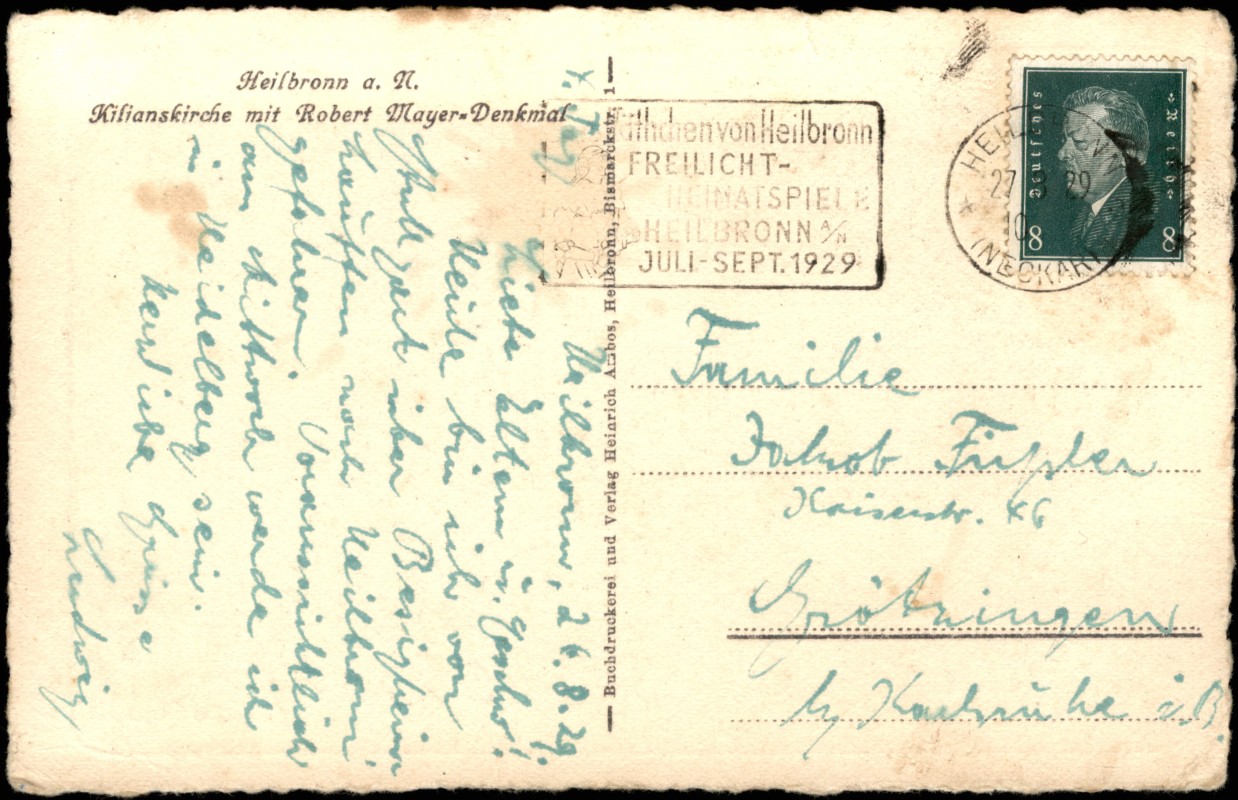 Heilbronn a. N.
Kilianskirche mit Robert Mayer-Denkmal
Buchdruckerei und Verlag Heinrich Ambos, Heilbronn, Bismarckstr. 1
Käthchen von Heilbronn
FREILICHT-
HEIMATSPIELE
HEILBRONN A/N
JULI-SEPT. 1929
HEILBRONN
27. 29
(NECKAR)
Deutsches Reich
8 8
4. Tag
Heilbronn, 26.8.29.
Liebe Eltern u. Geschw.!
Heute bin ich von
Stuttgart über Besigheim
Lauffen nach Heilbronn
gefahren. Voraussichtlich
am Mittwoch werde ich
in Heidelberg sein.
Herzliche Grüsse
Ludwig
Familie
Jakob Fießler
Kaiserstr. 46
Grötzingen
b/ Karlsruhe i. B.